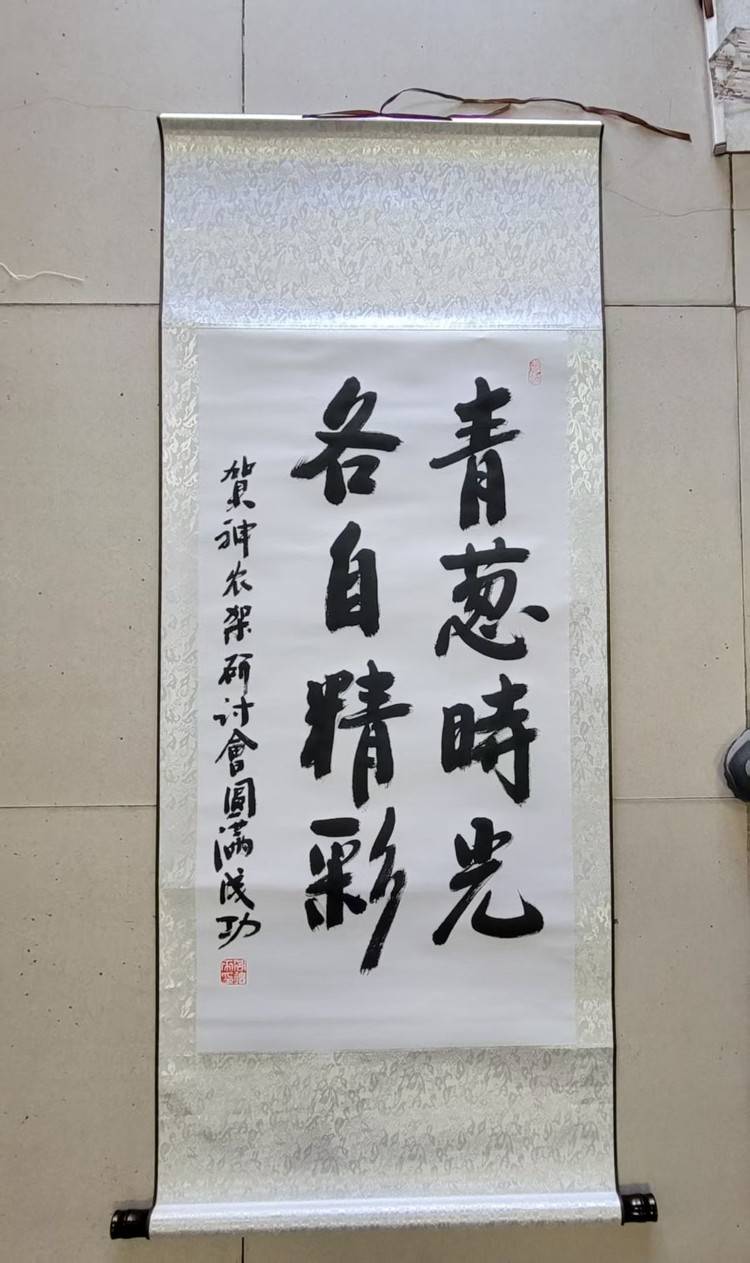 青葱時光
各自精彩
贺神农架研讨會圓满成功